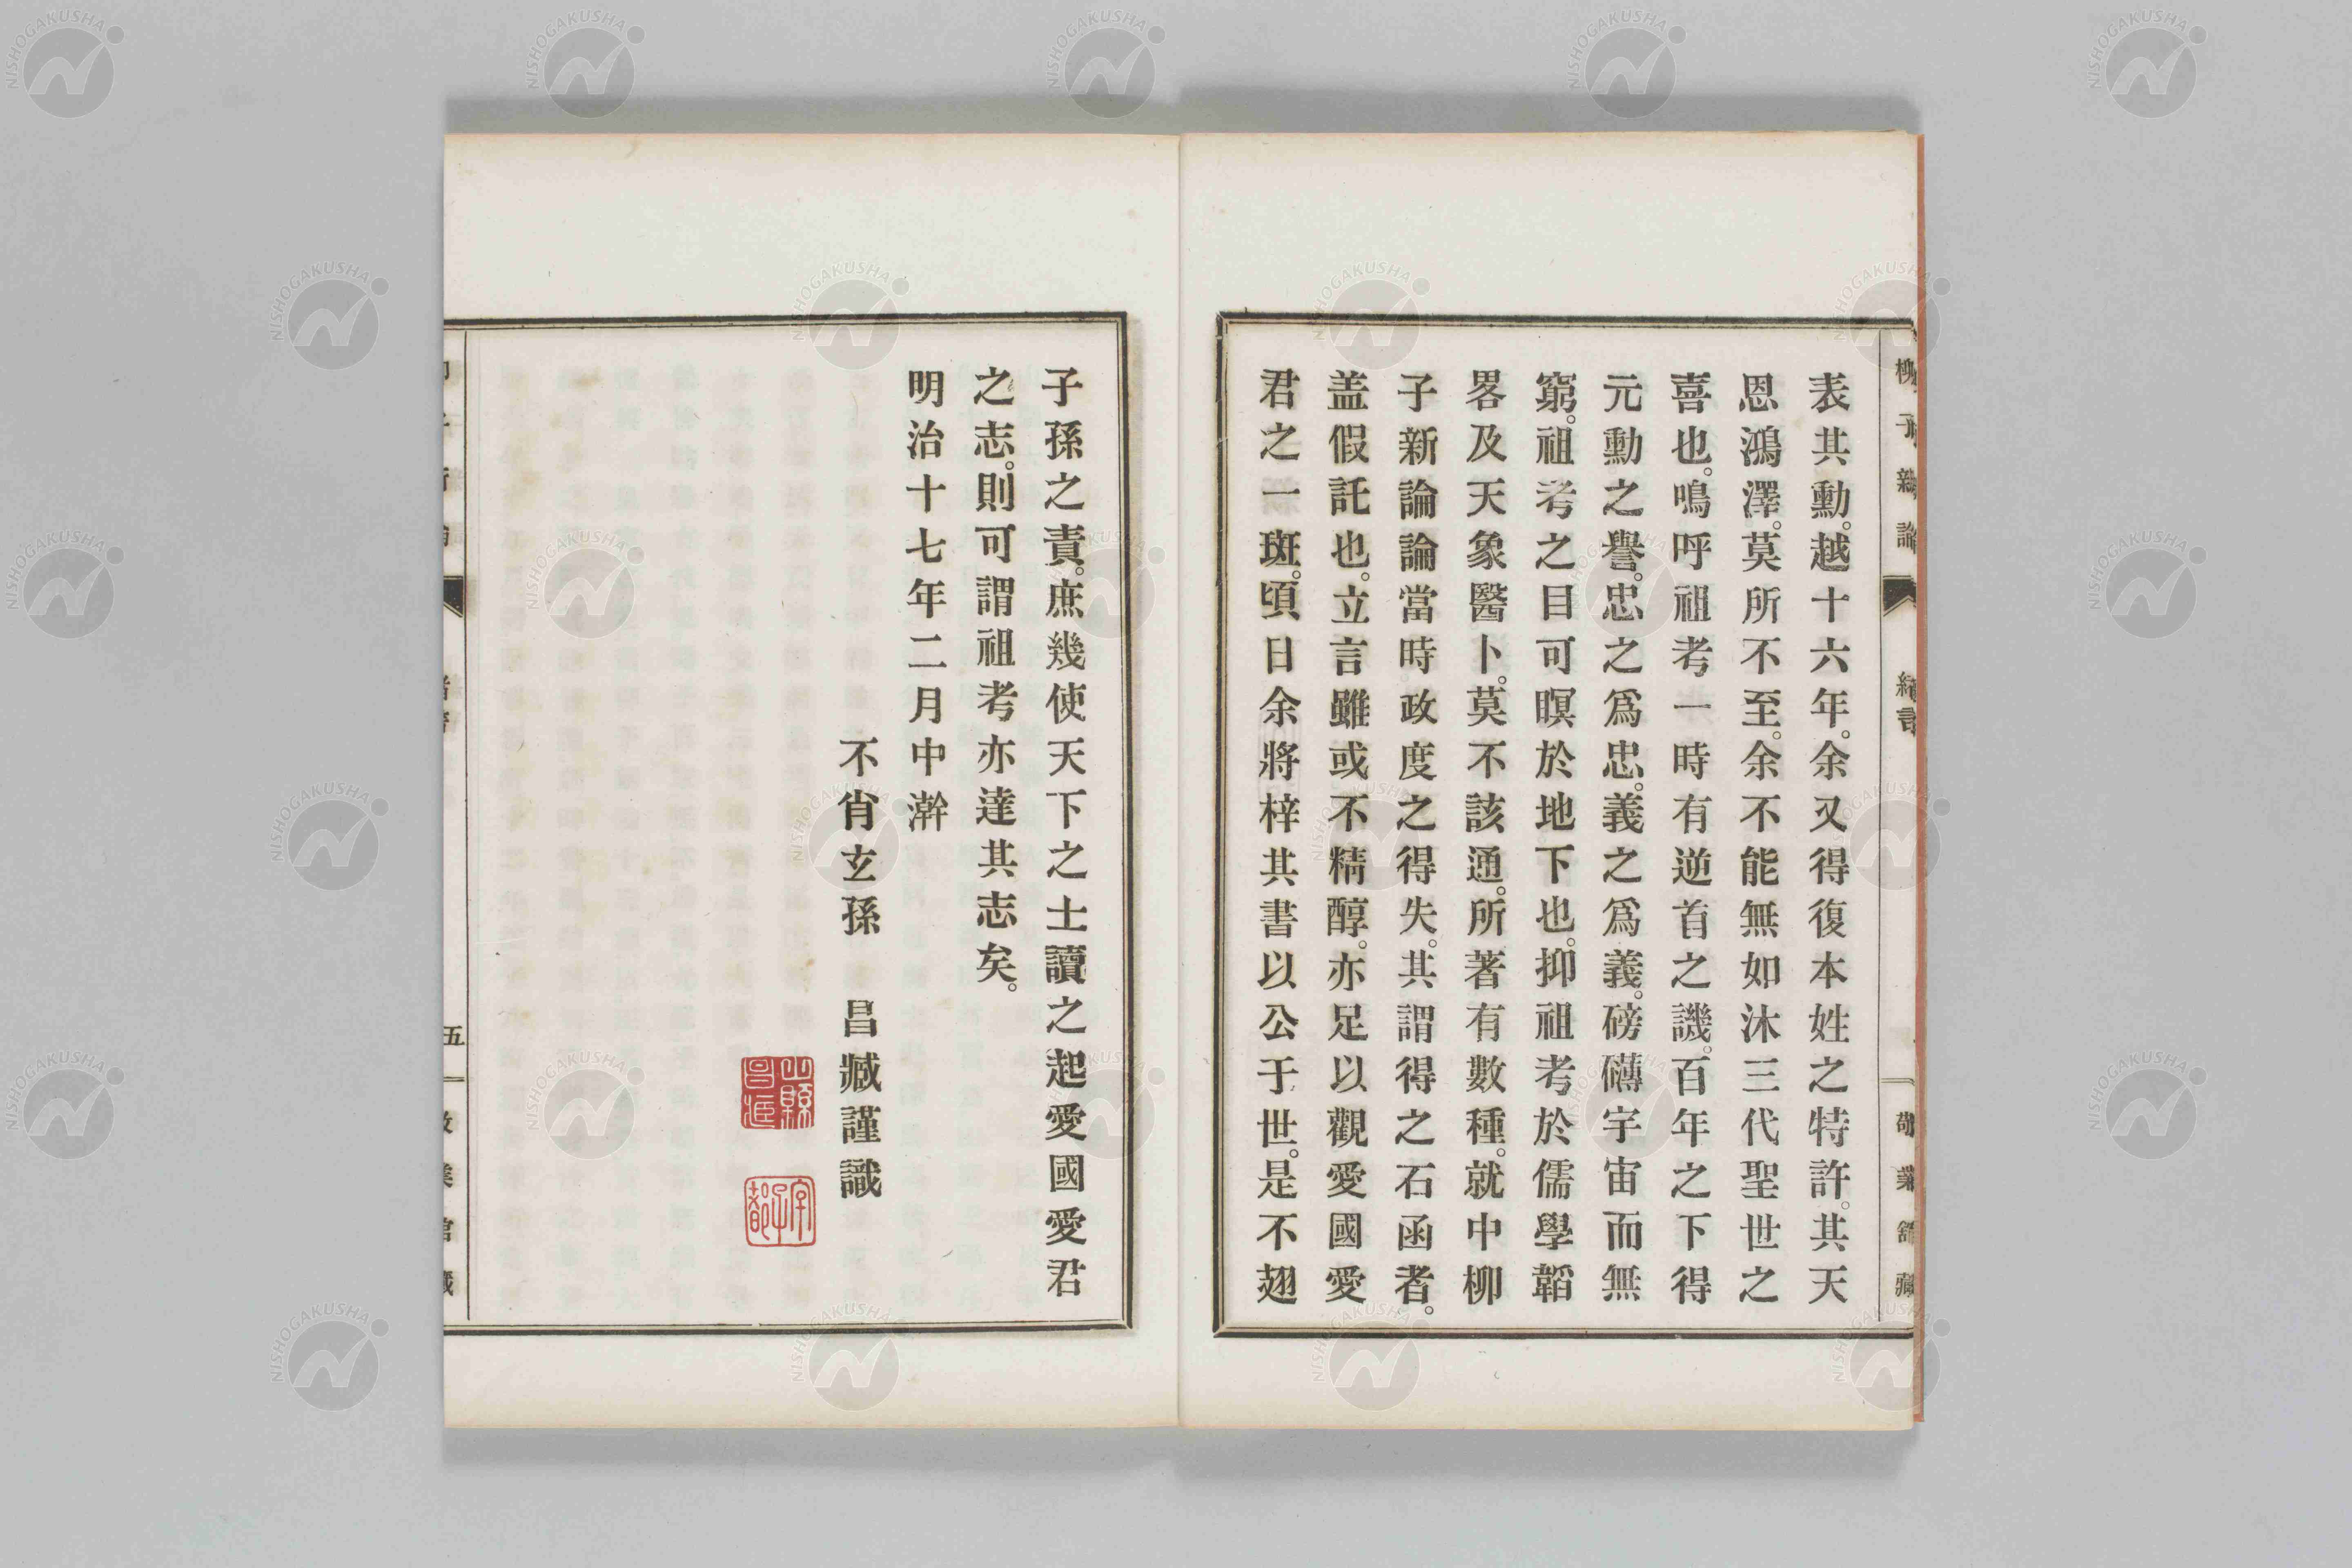 柳子新論
緒言
敬業館藏
表其勳。越十六年。余又得復本姓之特許。其天
恩鴻澤。莫所不至。余不能無如沐三代聖世之
喜也。鳴呼祖考一時有逆首之譏。百年之下得
元勳之譽。忠之爲忠。義之爲義。磅礴宇宙而無
窮。祖考之目可瞑於地下也。抑祖考於儒學韜
畧及天象醫卜。莫不該通。所著有數種。就中柳
子新論論當時政度之得失。其謂得之石函者。
盖假託也。立言雖或不精醇。亦足以觀愛國愛
君之一斑。頃日余將梓其書以公于世。是不翅
子孫之責。庶幾使天下之士讀之起愛國愛君
之志。則可謂祖考亦達其志矣。
明治十七年二月中澣
不肖玄孫　昌臧謹識
山縣昌臧
字子都
五
NISHOGAKUSHA